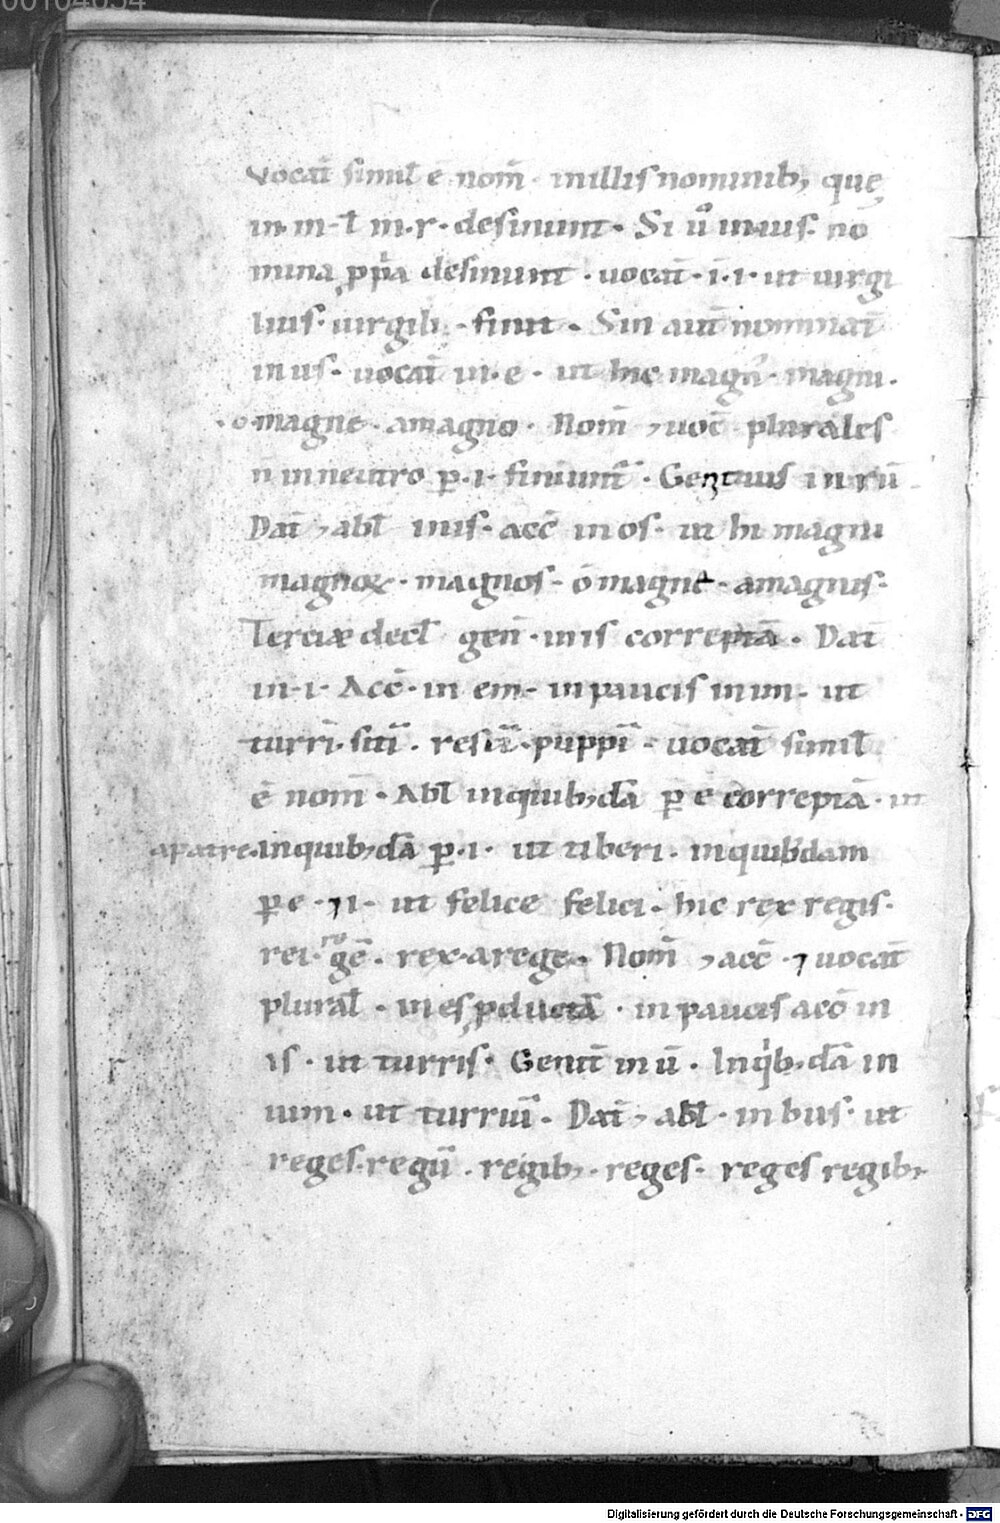 00104054
vocat̄ simił ē nom̄ · in illis nominib; quę
in · m · ł in · r · desinunt · Si ů in ius · no
mina p̱pͥa desinunt · uocat̄ · i · i · ut uirgi
lius · uirgili · fiunt · Sin aut̄ nominat̄
in us · uocat̄ in · e · ut hic magn᷒ · magni ·
· o · magne · a magno · Nom̄ ⁊ uoc̄ plurales
n̄ in neutro p̱ · i · finiunt᷑ · Genitiuis in rū
Dat̄ ⁊ abł in is · acc̄ in os · ut hi magni
magnoꝝ · magnos · o magne · a magnis ·
Terciæ decł gen̄ · in is correptā · Dat̄
in · i · Acc̄ · in em · in paucis in im · ut
turrī · sitī · restī · puppī · uocat̄ simił
ē nom̄ · Abł in quib;dā p̱ e correptā · ut
a patre · in quib;dā p̱ · i · ut tiberi · in quibdam
p̱ e · ⁊ i · ut felice felici · hic rex regis ·
regi · regē · rex · a rege · Nom̄ ⁊ acc̄ · ⁊ uocat̄
plurał · in es p̱ductā · in paucis acc̄ in
is · ut turris · Genit̄ in ū · In qͥb;dā in
ium · ut turriū · Dat̄ ⁊ abł · in bus · ut
reges · regū · regib; · reges · reges regib;
Digitalisierung gefördert durch die Deutsche Forschungsgemeinschaft - DFG